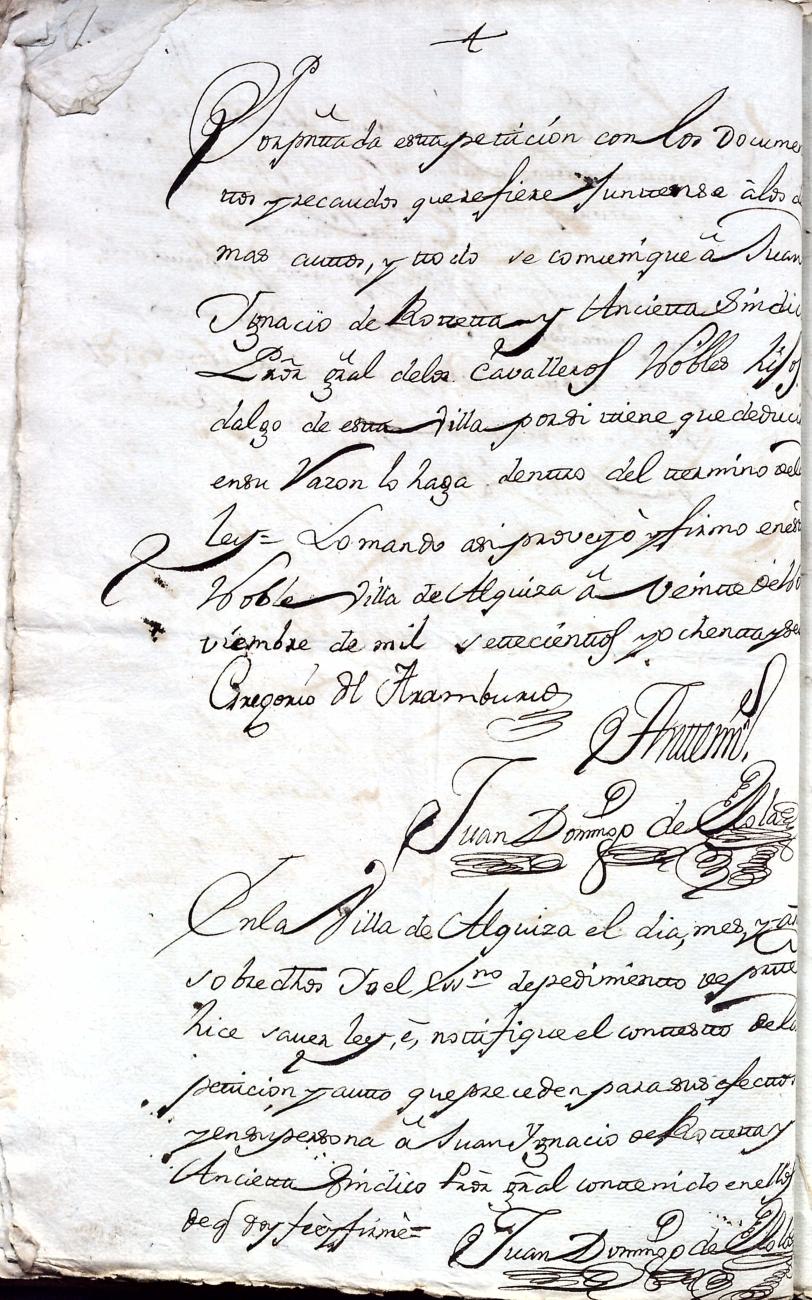 Por presentada esta petición con los Docume
ntos y recaudos que refiere Juntense à los de
mas auttos, y ttodo se comunique â Juan
Ygnacio de Rotteta y Ancietta Sindi
Prõr grãl delos Cavalleros Nobles hijos
dalgo de esta Villa por si ttiene que deduci
en su Razon lo haga denttro del ttermino dela
ley= Lo mando asi proveyò y firmo en est
Noble Villa de Alquiza â Veintte de No
viembre de mil settecienttos y ochentta y se
Gregorio de Aramburu
Anttemi
Juan Domingo de
En la Villa de Alquiza el dia, mes, y añ
sobredhos Yo el Essno de pedimientto de partte
hice saver ley, è, nottifique el conttestto dela
petticion y autto que preceden para sus efecttos
y en su persona â Juan Ygnacio de Rotteta y
Ancietta Sindico Prõr grãl conttenido en ellos
de q doy feè y firmè=
Juan Domingo de